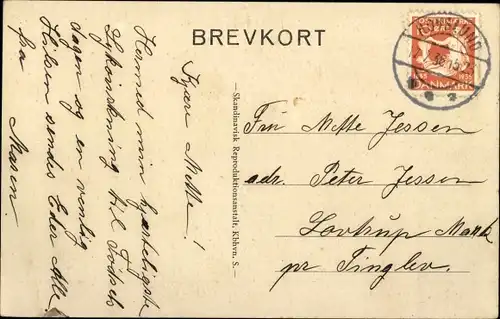 BREVKORT
Kjære Mette!
Hermed min hjerteligste
Lykønskning til Fødsels
dagen og en venlig
Hilsen sendes Eder Alle
fra
Maren.
Skandinavisk Reproduktionsanstalt, Kbhvn. S.
Fru Mette Jessen
adr. Peter Jessen
Lovtrup Mark
pr Tinglev.
DANMARK